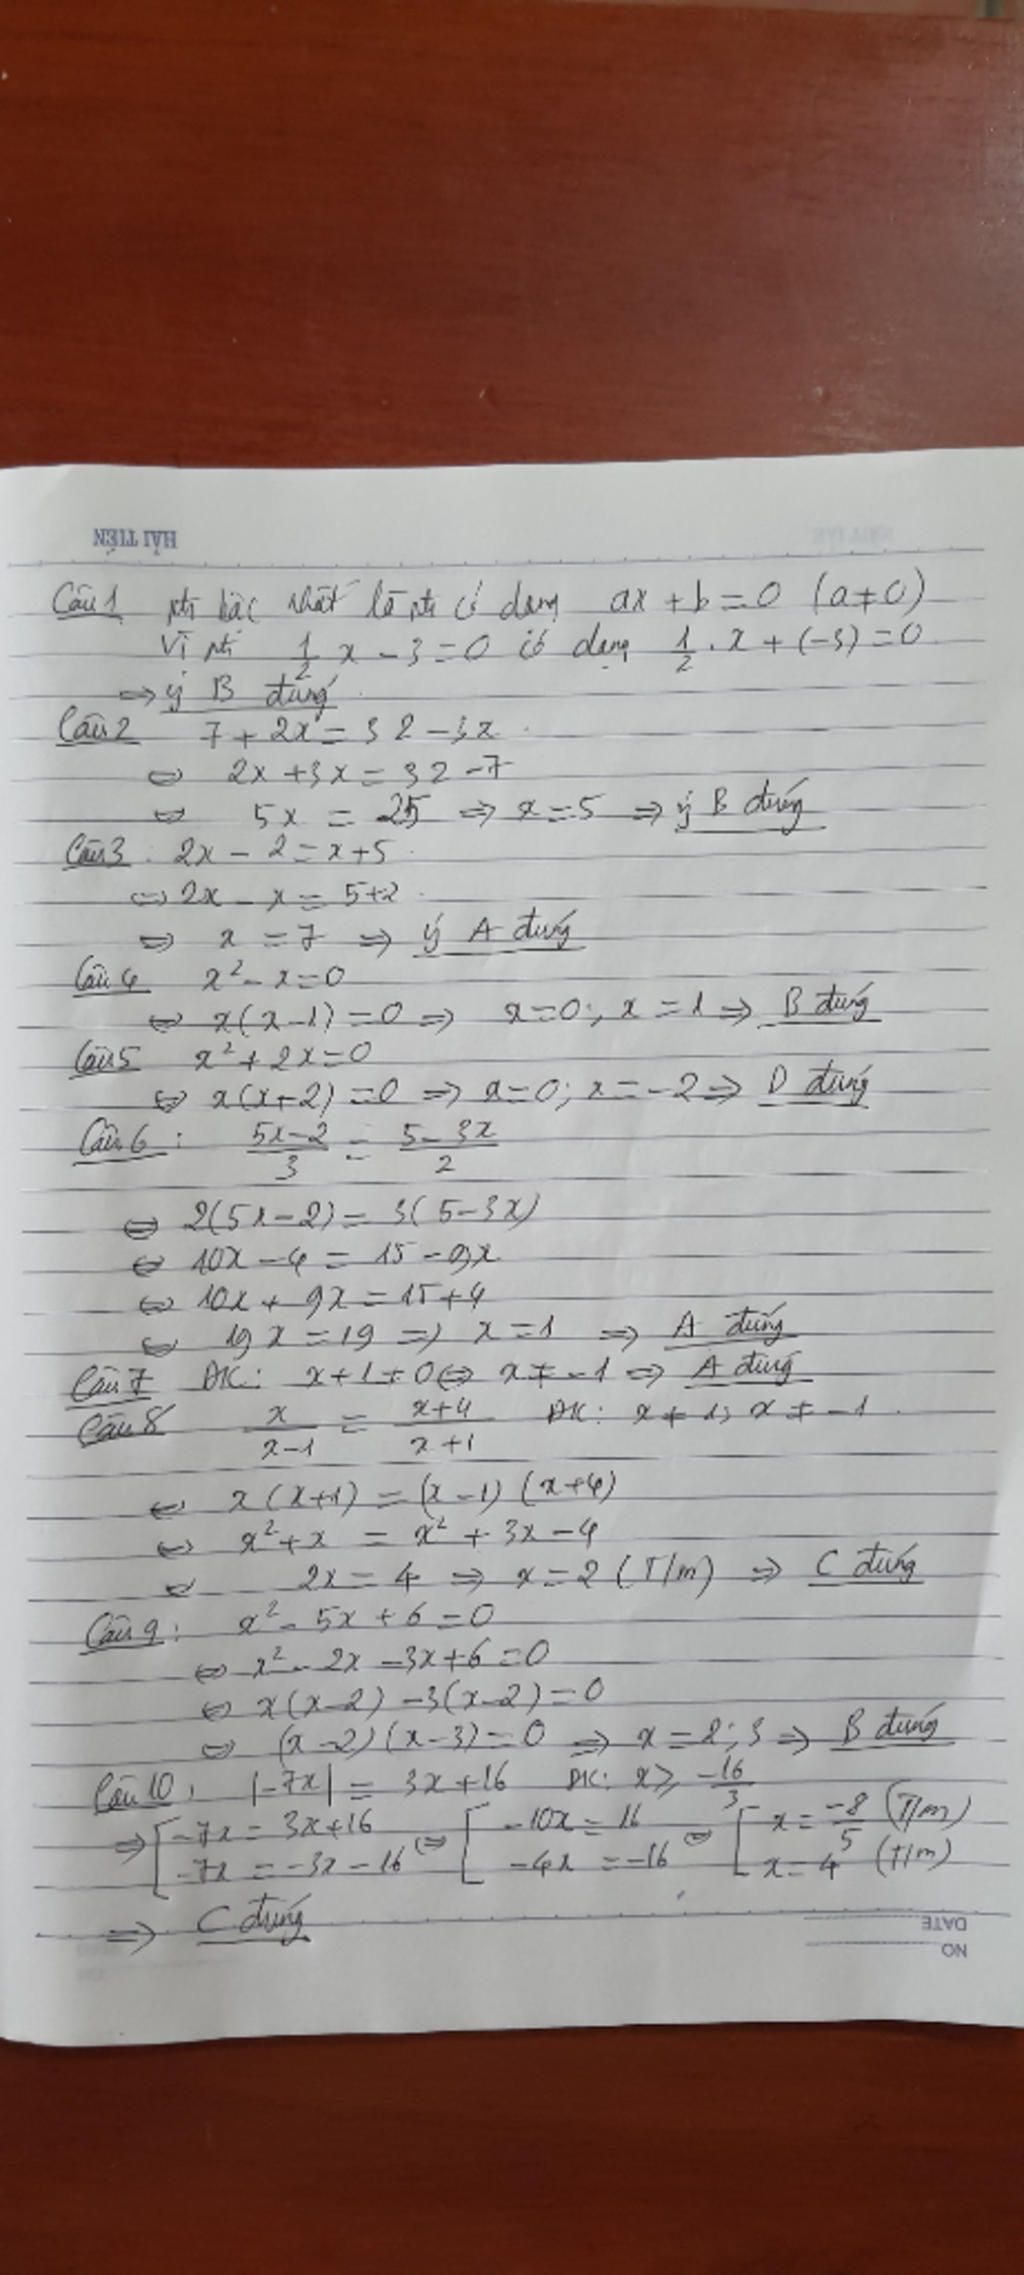 HẢI TIẾN
Câu 1 pt bậc nhất là pt có dạng ax + b = 0 (a ≠ 0)
Vì pt 1/2 x - 3 = 0 có dạng 1/2 . x + (-3) = 0
=> ý B đúng
Câu 2 7 + 2x = 32 - 3x
<=> 2x + 3x = 32 - 7
<=> 5x = 25 => x = 5 => ý B đúng
Câu 3 : 2x - 2 = x + 5
<=> 2x - x = 5 + 2
<=> x = 7 => ý A đúng
Câu 4 x² - x = 0
<=> x(x - 1) = 0 => x = 0 ; x = 1 => B đúng
Câu 5 x² + 2x = 0
<=> x(x + 2) = 0 => x = 0 ; x = -2 => D đúng
Câu 6 : (5x - 2)/3 = (5 - 3x)/2
<=> 2(5x - 2) = 3(5 - 3x)
<=> 10x - 4 = 15 - 9x
<=> 10x + 9x = 15 + 4
<=> 19x = 19 => x = 1 => A đúng
Câu 7 ĐK : x + 1 ≠ 0 <=> x ≠ -1 => A đúng
Câu 8 x/(x - 1) = (x + 4)/(x + 1) ĐK : x ≠ 1 ; x ≠ -1
<=> x(x + 1) = (x - 1)(x + 4)
<=> x² + x = x² + 3x - 4
<=> 2x = 4 => x = 2 (T/m) => C đúng
Câu 9 : x² - 5x + 6 = 0
<=> x² - 2x - 3x + 6 = 0
<=> x(x - 2) - 3(x - 2) = 0
<=> (x - 2)(x - 3) = 0 => x = 2 ; 3 => B đúng
Câu 10 : |-7x| = 3x + 16 ĐK : x ≥ -16/3
=> [ -7x = 3x + 16 <=> [ -10x = 16 <=> [ x = -8/5 (T/m)
-7x = -3x - 16 -4x = -16 x = 4 (T/m)
=> C đúng
DATE
NO